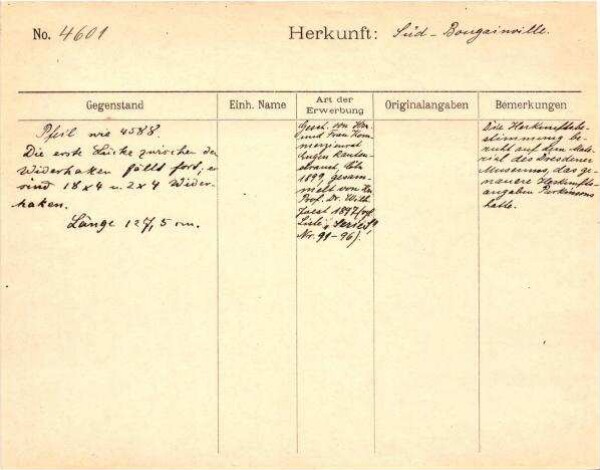 No. 4601
Herkunft: Süd-Bougainville.
Gegenstand
Einh. Name
Art der Erwerbung
Originalangaben
Bemerkungen
Pfeil wie 4588.
Die erste Lücke zwischen den
Widerhaken fällt fort; es
sind 18 x 4 u. 2 x 4 Wider-
haken.
Länge 127,5 cm.
Gesch. von Herr
und Frau Kom-
merzienrat
Eugen
1899, gesam-
melt von
Prof. Dr. Wilh.
Joest 1897
Liste, Serie
Nr. 91-96).
Die Herkunftsbe-
stimmung be-
ruht auf dem Mate-
rial des Dresdener
Museums, das ge-
nauere Herkunfts-
angaben Parkinsons
hatte.